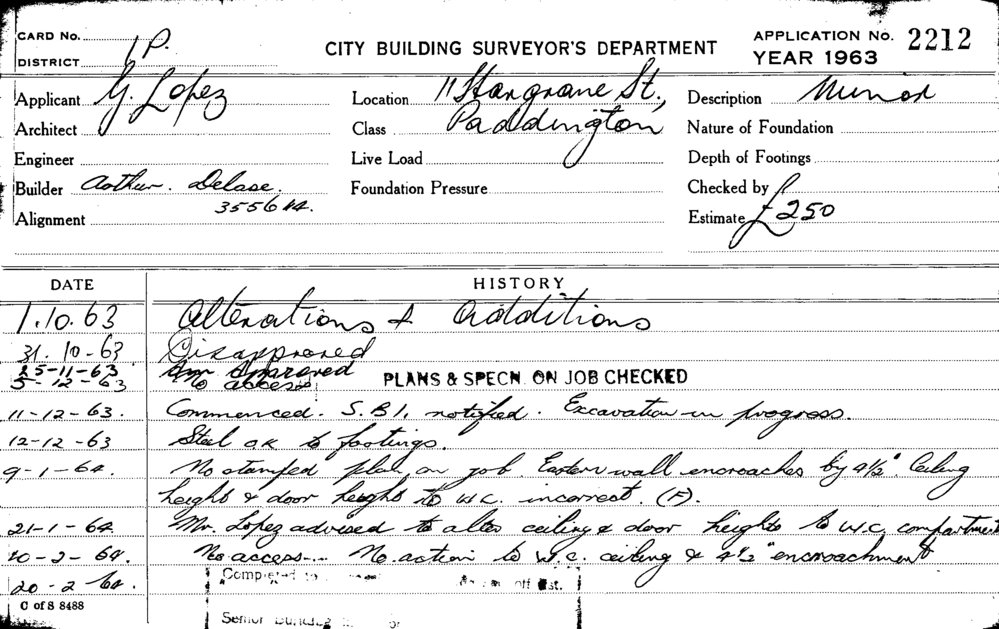 CARD No.
DISTRICT 1P.
CITY BUILDING SURVEYOR'S DEPARTMENT
APPLICATION No. 2212
YEAR 1963
Applicant Y. Lopez
Architect
Engineer
Builder Arthur. Delase.
355614.
Alignment
Location 11 Hargrave St.,
Class Paddington
Live Load
Foundation Pressure
Description Minor
Nature of Foundation
Depth of Footings
Checked by
Estimate £250
DATE HISTORY
1.10.63 Alterations & Additions
31.10-63 Disapproved
25-11-63 Approved
5-12-63 No access. PLANS & SPECN. ON JOB CHECKED
11-12-63. Commenced. S.B.I. notified. Excavation in progress.
12-12-63 Steel OK to footings.
9-1-64. No stamped plan, on job Eastern wall encroaches by 4½" Ceiling
height & door height to W.C. incorrect. (F).
21-1-64 Mr. Lopez advised to alter ceiling & door heights to W.C. compartment
10-2-64. No access... No action to W.C. ceiling & 4½" encroachment
20-2-64. Completed
off est.
C of S 8488 Senior